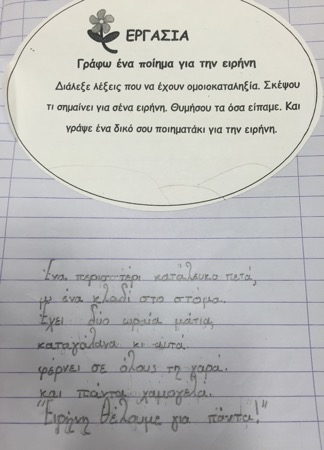 ΕΡΓΑΣΙΑ
Γράφω ένα ποίημα για την ειρήνη
Διάλεξε λέξεις που να έχουν ομοιοκαταληξία. Σκέψου
τι σημαίνει για σένα ειρήνη. Θυμήσου τα όσα είπαμε. Και
γράψε ένα δικό σου ποιηματάκι για την ειρήνη.
Ένα περιστέρι κατάλευκο πετά,
μ' ένα κλαδί στο στόμα.
Έχει δύο ωραία μάτια,
καταγάλανα κι αυτά.
φέρνει σε όλους τη χαρά.
και πάντα χαμογελά.
"Ειρήνη θέλουμε για πάντα!"